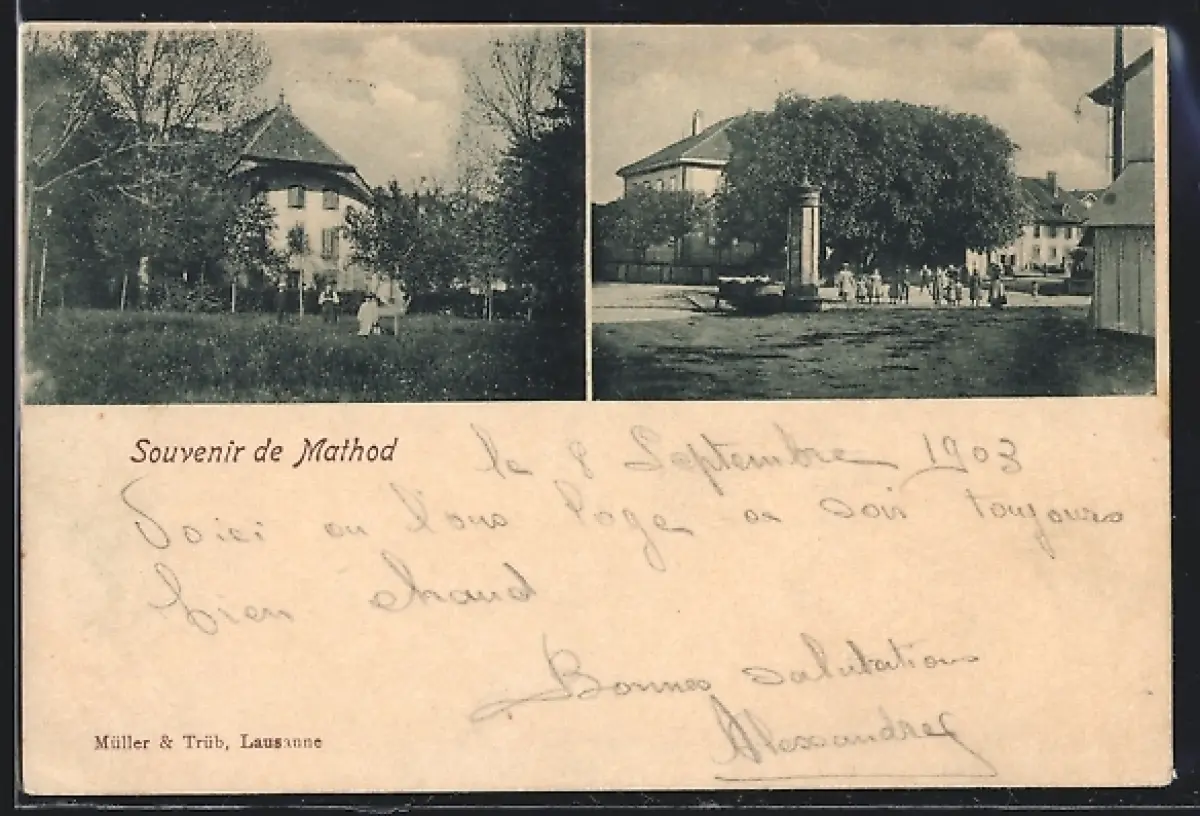 Souvenir de Mathod
le 8 Septembre 1903
Voici ou l'ous loge ce soir toujours
bien chaud
Bonnes salutations
Alexandre
Müller & Trüb, Lausanne